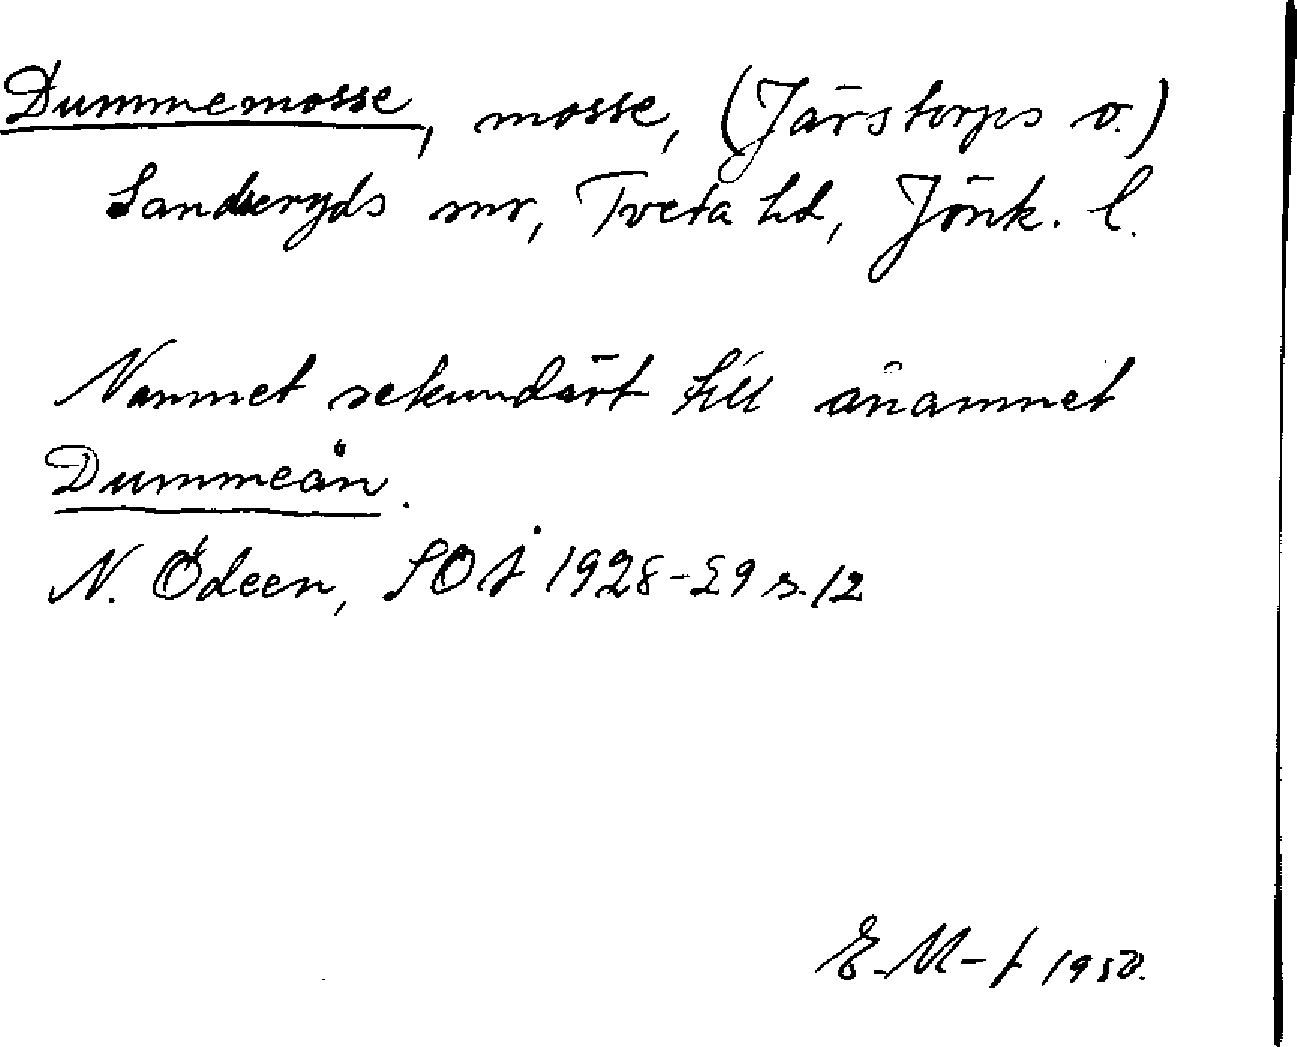 Dummemosse, mosse, (Järstorps o.)
Sandseryds snr, Tveta hd, Jönk. l.
Namnet sekundärt till ånamnet
Dummeån.
N. Ödeen, SOÅ 1928-29 s. 12
E. M-t 1950.